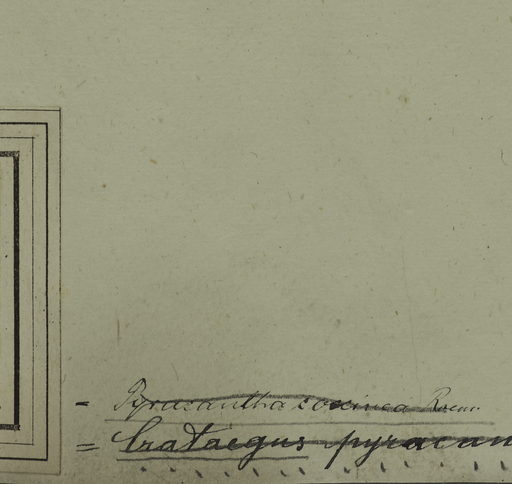 - Pyracantha coccinea Roem.
= Crataegus pyracan